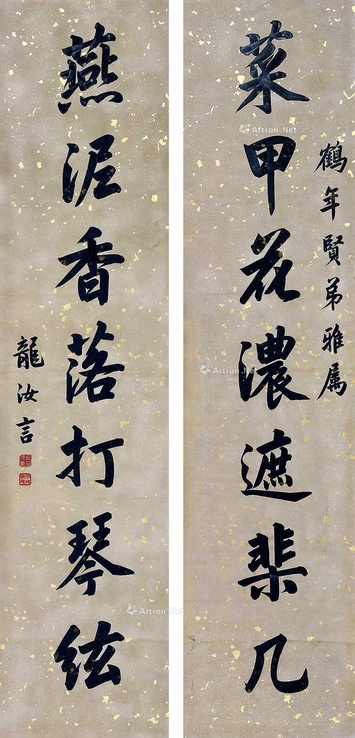 鶴年賢弟雅属
菜甲花濃遮棐几
燕泥香落打琴絃
龍汝言
Artron.Net
Artron.Net
Artron.Net
Artron.Net